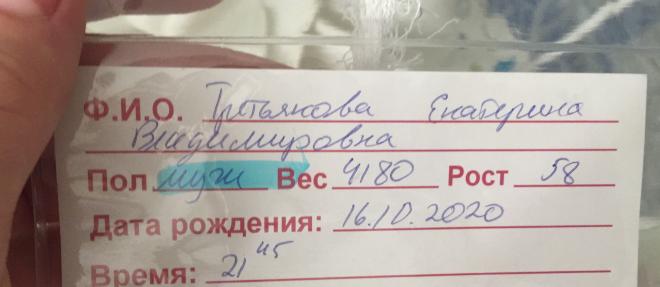 Ф.И.О. Третьякова Екатерина
Владимировна
Пол муж Вес 4180 Рост 58
Дата рождения: 16.10.2020
Время: 21 45